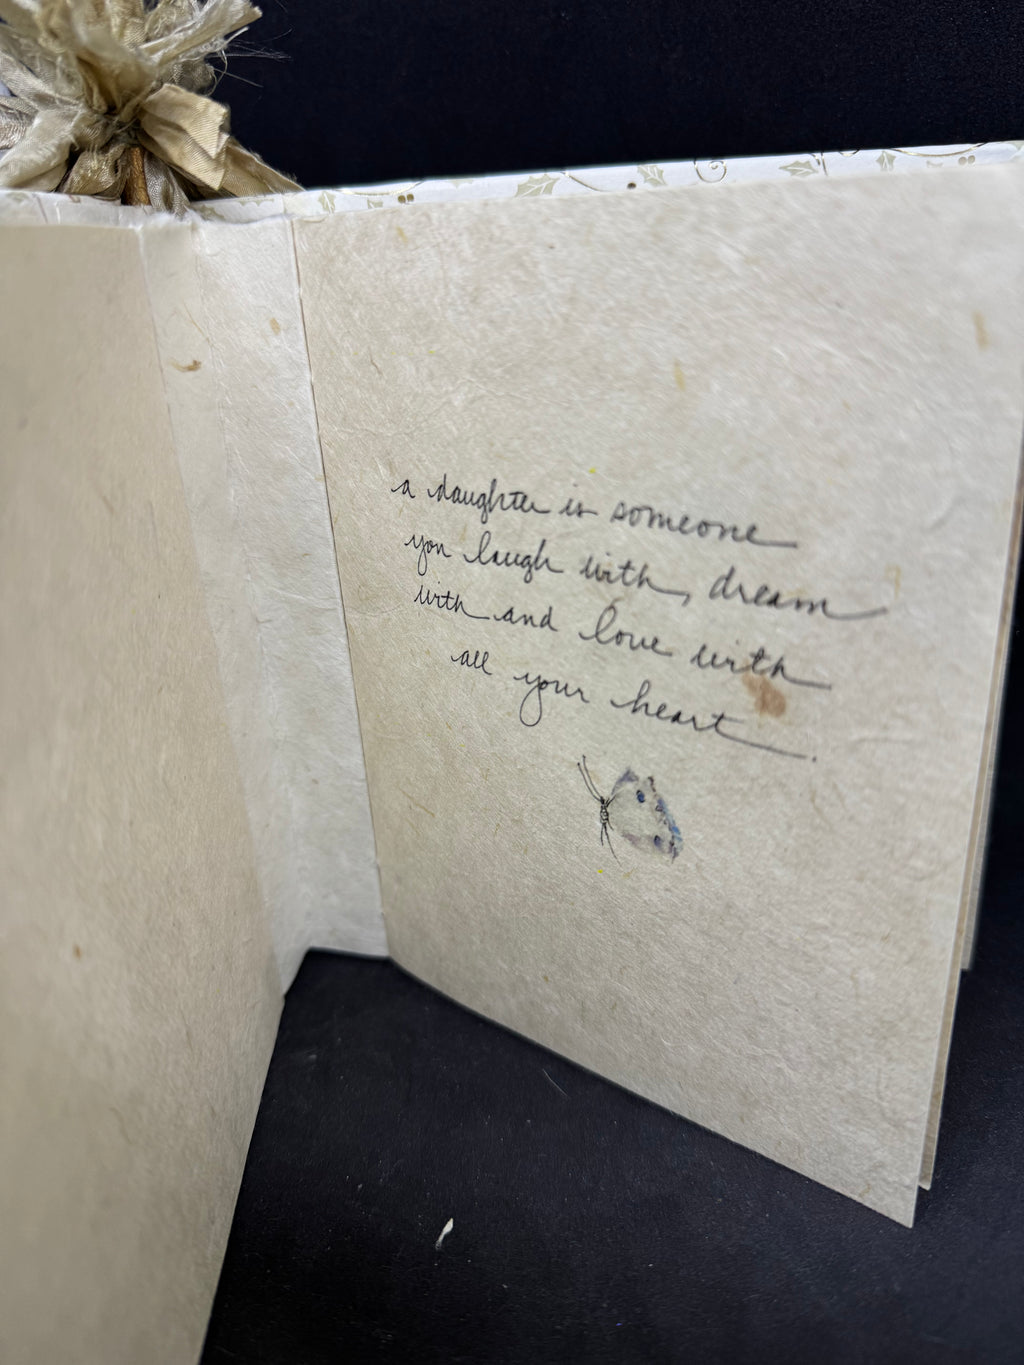 a daughter is someone
you laugh with, dream
with and love with
all your heart.